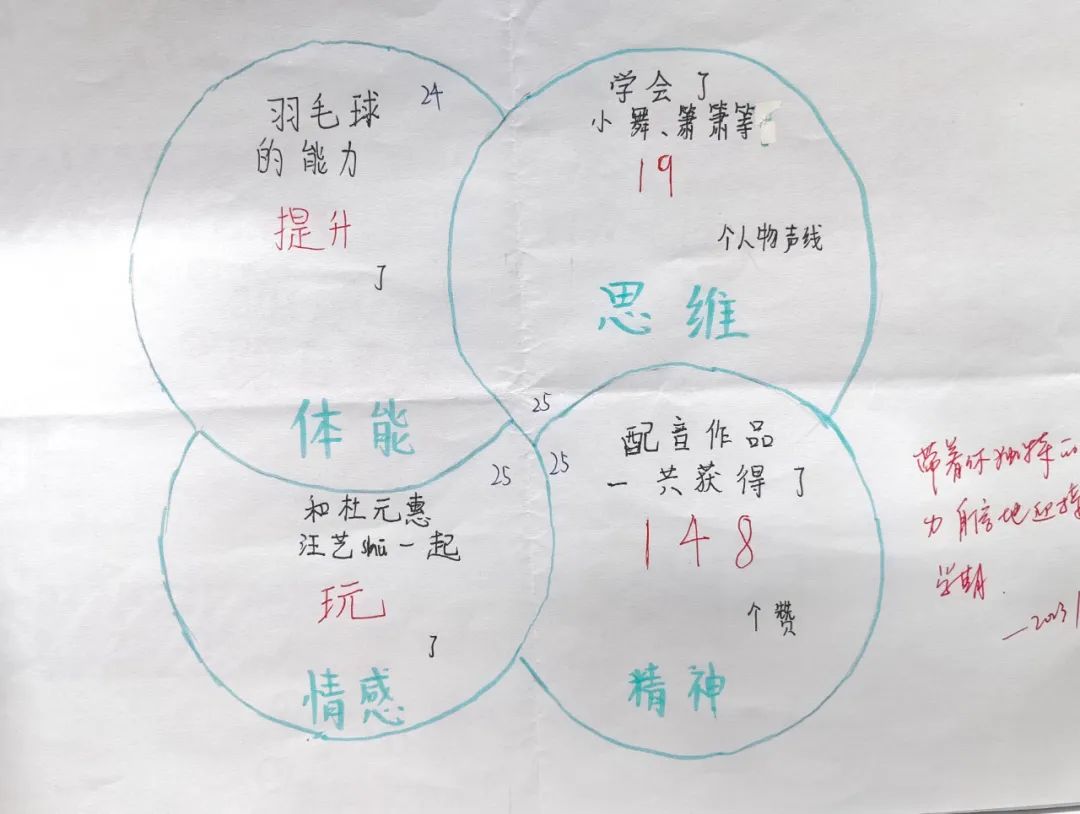 羽毛球
24
的能力
提升
了
体能
学会了
小舞、箫箫等
19
个人物声线
思维
25
和杜元惠
25
汪艺shū一起
玩
了
情感
25
配音作品
一共获得了
148
个赞
精神
带着你独特的
力自信地迎接
学期.
—2023